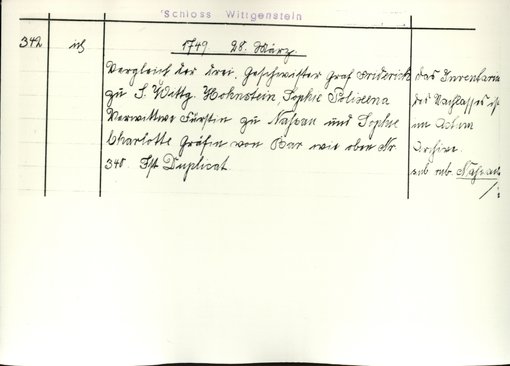 Schloss Wittgenstein
342
ich
1749 28. März.
Vergleich der drei Geschwister Graf Friderich
zu S. Wittg. Hohnstein, Sophie Polixena
Verwittwe Fürstin zu Nassau und Sophie
Charlotte Gräfin von Bar wie oben Nr.
348. Ist Duplicat
das Inventarium
des Nachlasses ist
im Acten
Archive
sub rub. Nassau